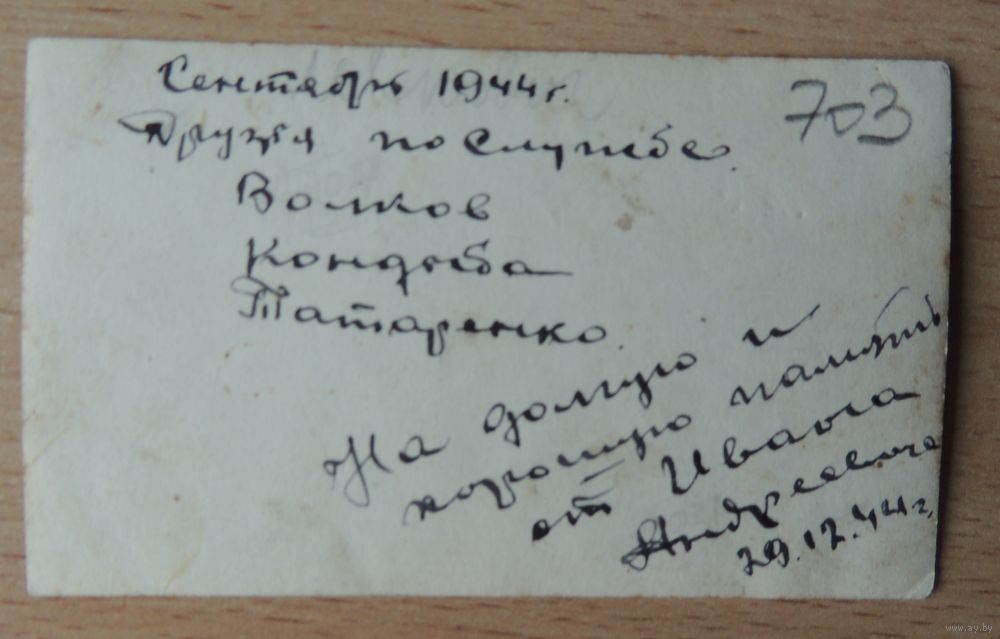 Сентябрь 1944 г.
703
Друзья по службе.
Волков
Кондыба
Татаренко.
На долгую и
хорошую память
от Ивана
Андреевича
29.12.44 г.
www.ay.by